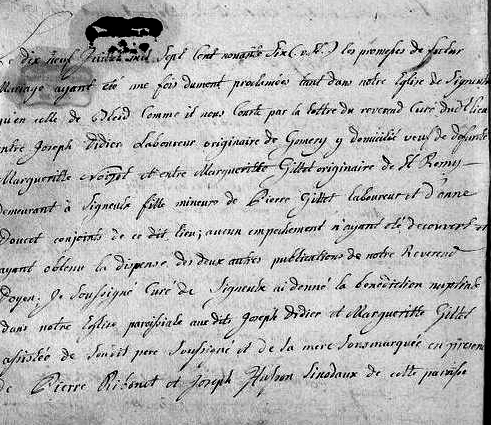 Le dix neuf juillet mil sept cent nonante six (v. st.) les promesses de futur
Mariage ayant été une fois dument proclamées tant dans notre Eglise de Signeulx
qu'en celle de Bleid Comme il nous Conste par la lettre du reverend Curé du dit lieu
entre Joseph Didier Laboureur originaire de Gomery y domicilié veuf de defunte
Margueritte et entre Margueritte Gillet originaire de St Remy
demeurant à Signeulx fille mineure de Pierre Gillet laboureur et d'anne
Doucet conjoints de ce dit lieu; aucun empechement n'ayant été decouvert et
ayant obtenu la dispense des deux autres publications de notre Reverend
Doyen. Je soussigné Curé de Signeulx ai donné la benediction nuptiale
dans notre Eglise paroissiale aux dits Joseph Didier et Margueritte Gillet
assistée de son dit pere soussigné et de la mere sousmarquée en presence
de Pierre et Joseph Husson sinodaux de cette paroisse